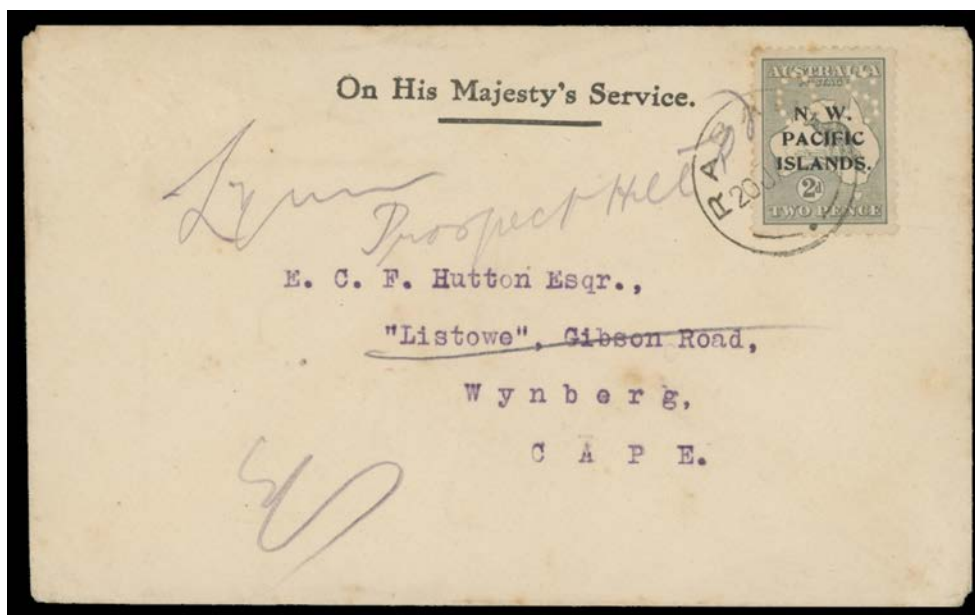 On His Majesty's Service.
AUSTRALIA
N. W.
PACIFIC
ISLANDS.
2d
TWO PENCE
RAB
20 J
Lynn
Prospect Hill
E. C. F. Hutton Esqr.,
"Listowe", Gibson Road,
Wynberg,
C A P E.